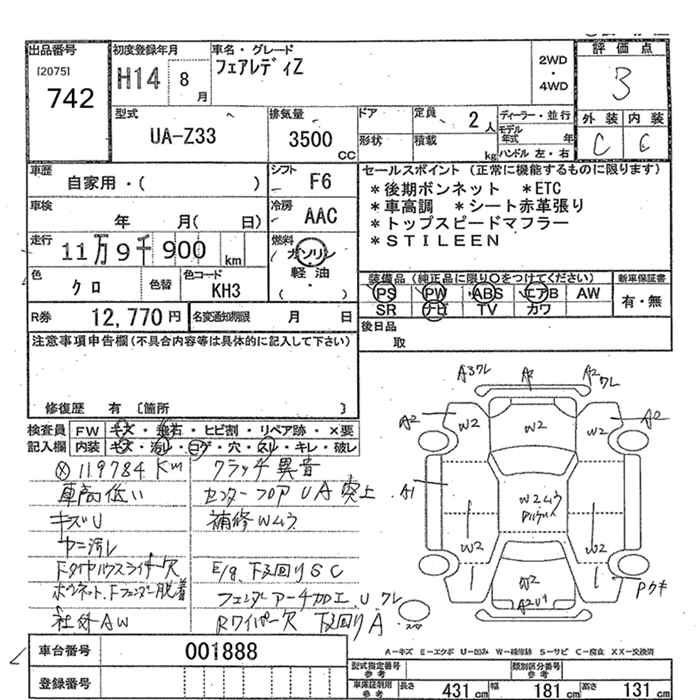 出品番号
[2075]
742
初度登録年月
H14 8月
車名・グレード
フェアレディZ
2WD
・
4WD
評価点
3
外装 内装
C C
型式
UA-Z33
排気量
3500 CC
ドア
形状
定員 2人
積載 kg
ディーラー・並行
モデル年式 年
ハンドル 左・右
車歴
自家用・( )
シフト F6
車検
年 月( 日)
冷房 AAC
走行
11万9千900 km
燃料
ガソリン
軽油
( ・ )
色
クロ
色替
色コード
KH3
セールスポイント (正常に機能するものに限ります)
*後期ボンネット *ETC
*車高調 *シート赤革張り
*トップスピードマフラー
*STILEEN
装備品 (純正品に限り○をつけてください)
新車保証書
PS PW ABS エアB AW
SR ナビ TV カワ
有・無
R券 12,770円
名変通知期限 月 日
後日品
取
注意事項申告欄(不具合内容等は具体的に記入して下さい)
修復歴 有 〔箇所 〕
検査員 FW キズ・飛石・ヒビ割・リペア跡・×要
記入欄 内装 キズ・汚レ・コゲ・穴・スレ・キレ・破レ
119784 Km クラッチ異音
車高低い センターフロアUA突上
キズU 補修Wムラ
ヤニ汚レ
Fタイヤハウスライナー欠 E/g、下廻りSC
ボンネット、Fフェンダー脱着 フェンダーアーチ加工、U、ワレ
社外AW Rワイパー欠 下廻りA
A3ワレ A2 A2ワレ
A2 W2 W2 W2 A2
A1 W2ムラ
W2 W2
W2
A2U1
Pウキ
スペア
A-キズ E-エクボ U-凹み W-補修跡 S-サビ C-腐食 XX-交換済
車台番号 001888
登録番号
型式指定番号
参考
類別区分番号
参考
車保証制用
参考
長さ 431cm 幅 181cm 高さ 131cm